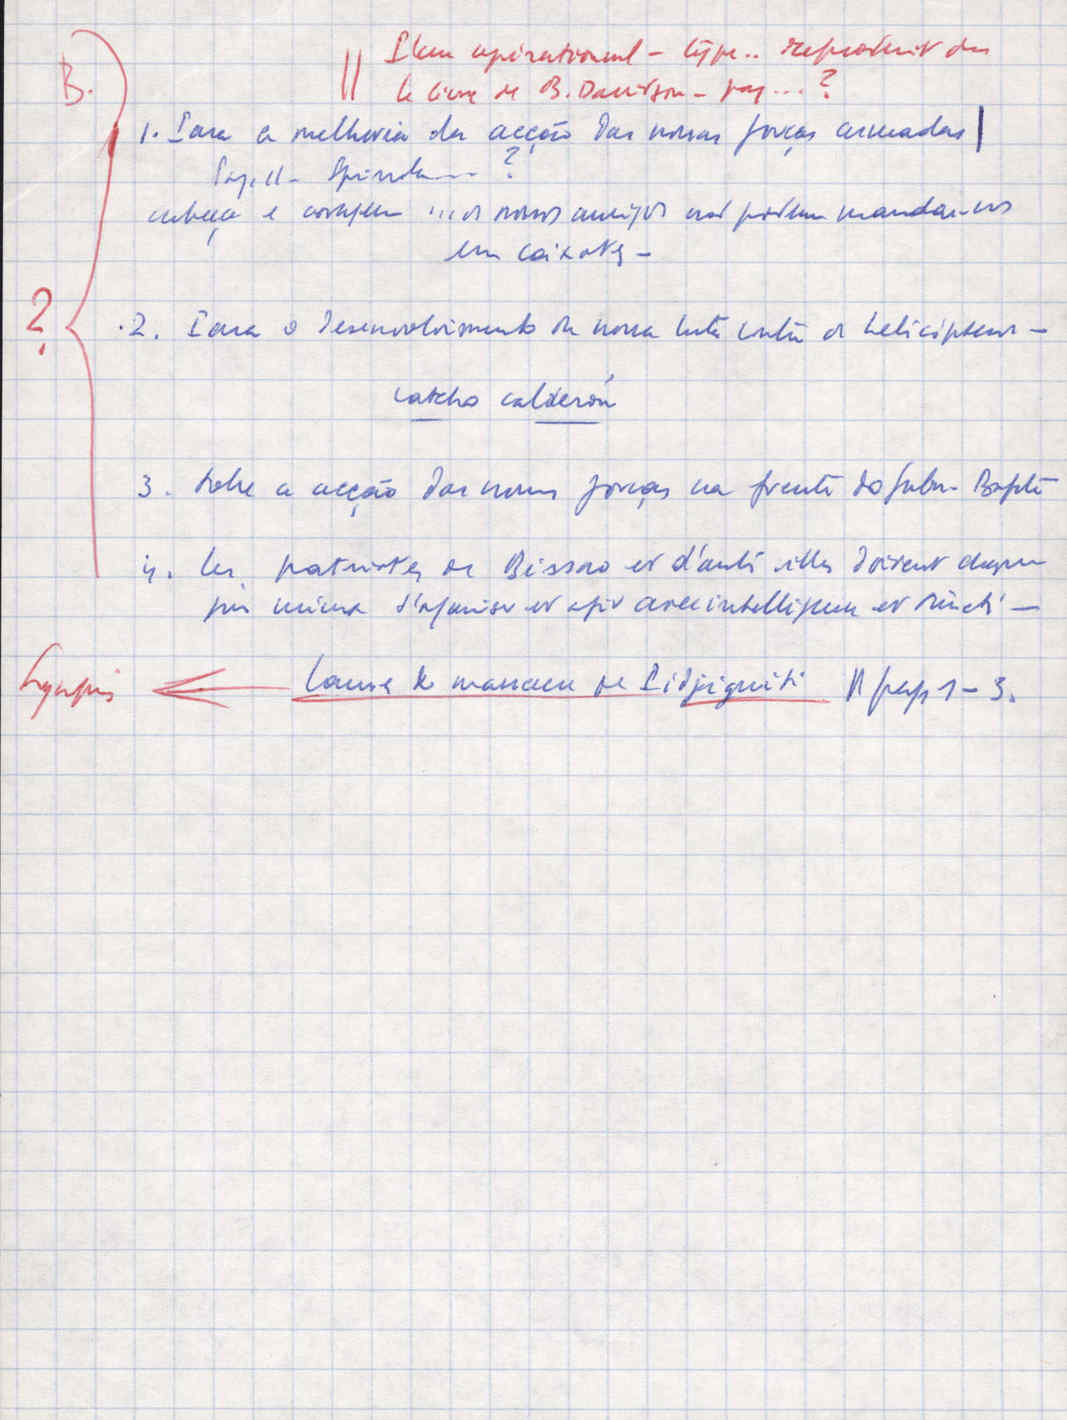 B.
Plan opérationnel - type.. reproduit dans
le livre de B. Davidson - pag ... ?
1. Para a melhoria da acção das nossas forças armadas
Pag. 11 - Spinola ---- ?
cabeça e coragem ... os nossos amigos não podem mandar-nos
em caixotes -
?
2. Para o desenvolvimento da nossa luta contra os helicópteros -
catcho calderón
3. Sobre a acção das nossas forças na frente do
4. Les patriotes de Bissao et d'autres villes doivent chaque
jour mieux s'organiser et agir avec intelligence et
Cause du massacre de Pidjiguiti pag 1 - 3.